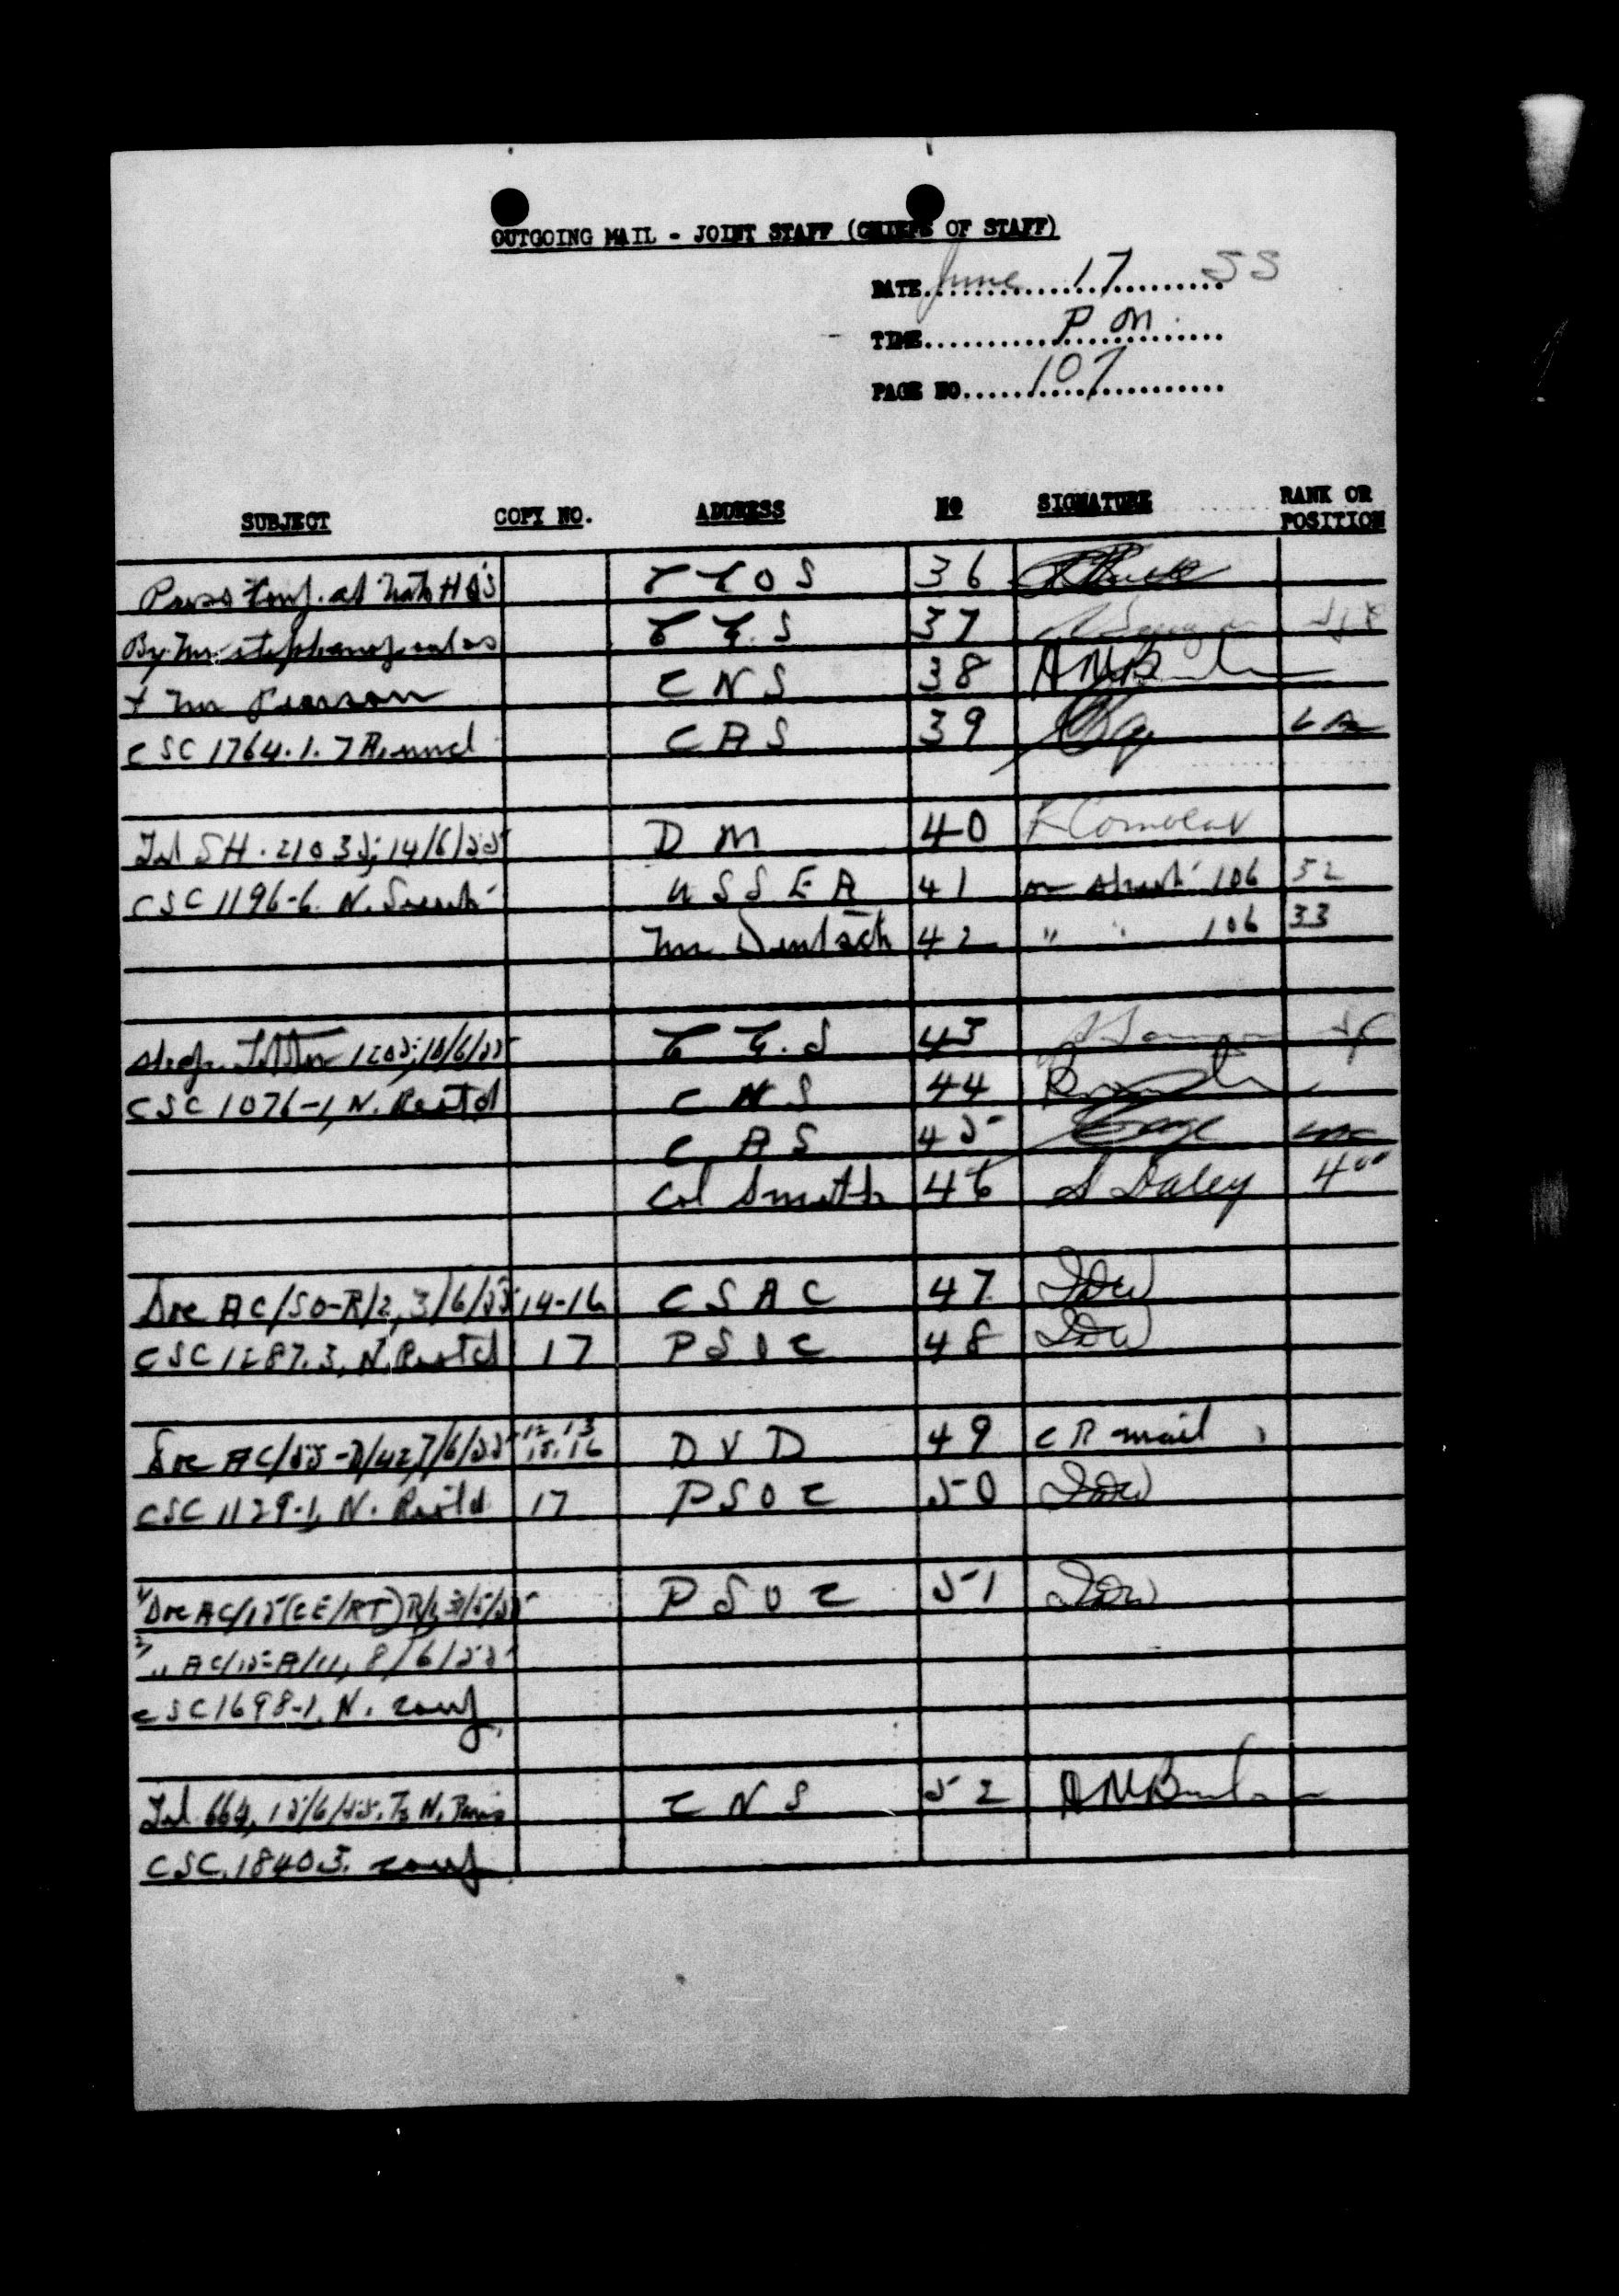 OUTGOING MAIL - JOINT STAFF (CHIEFS OF STAFF)
DATE June 17 55
TIME P M.
PAGE NO 107
SUBJECT COPY NO. ADDRESS NO SIGNATURE RANK OR POSITION
Press Conf. at Nato HQ's C C O S 36
By Mr Stephanopoulos C G. S 37
+ Mr Pearson C N S 38
CSC 1764.1. C A S 39
Tel SH. 21035; 14/6/55 D M 40
CSC 1196-6. N. Secret U S S E A 41 on sheet 106 32
Mr Deutsch 42 " " 106 33
Letter 1205; 10/6/55 C G. S 43
CSC 1076-1, N. Restd C N S 44
C A S 45
Col Smith 46 S Daley
Doc AC/50-R/2, 3/6/55 14-16 C S A C 47 IDW
CSC 1287.3, N. Restd 17 P S O C 48 IDW
Doc AC/55-D/42, 7/6/55 12, 13 15, 16 D V D 49 C R mail
CSC 1129-1, N. Restd 17 P S O C 50 IDW
1/ Doc AC/15(CE/RT)R/1, 31/5/55 P S O C 51 IDW
2/ " 8/6/55
CSC 1698-1, N. Conf.
Tel 664, 15/6/55. N. Paris C N S 52
CSC. 1840 Conf